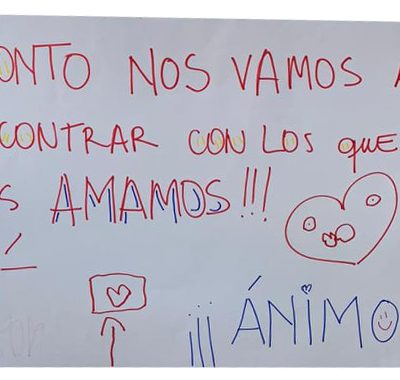 ONTO NOS VAMOS A
CONTRAR CON LOS QUE
S AMAMOS!!!
¡¡¡ÁNIMO